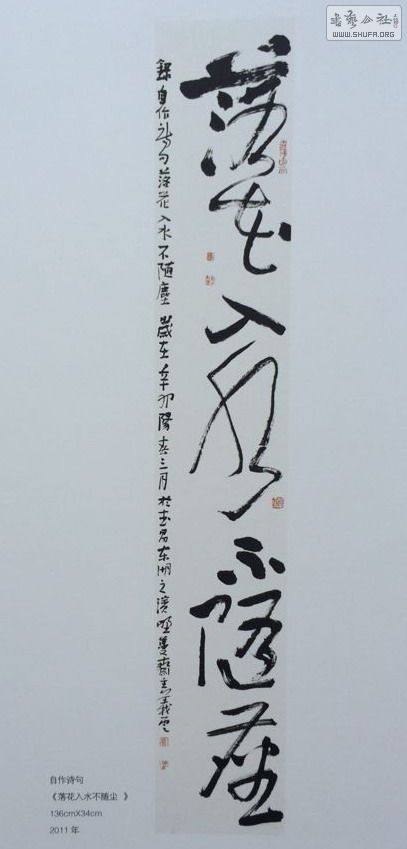 書藝公社
WWW.SHUFA.ORG
落花入水不隨塵
錄自作詩句落花入水不隨塵 歲在辛卯陽春三月於武昌东湖之濱
自作诗句
《落花入水不随尘 》
136cmX34cm
2011 年